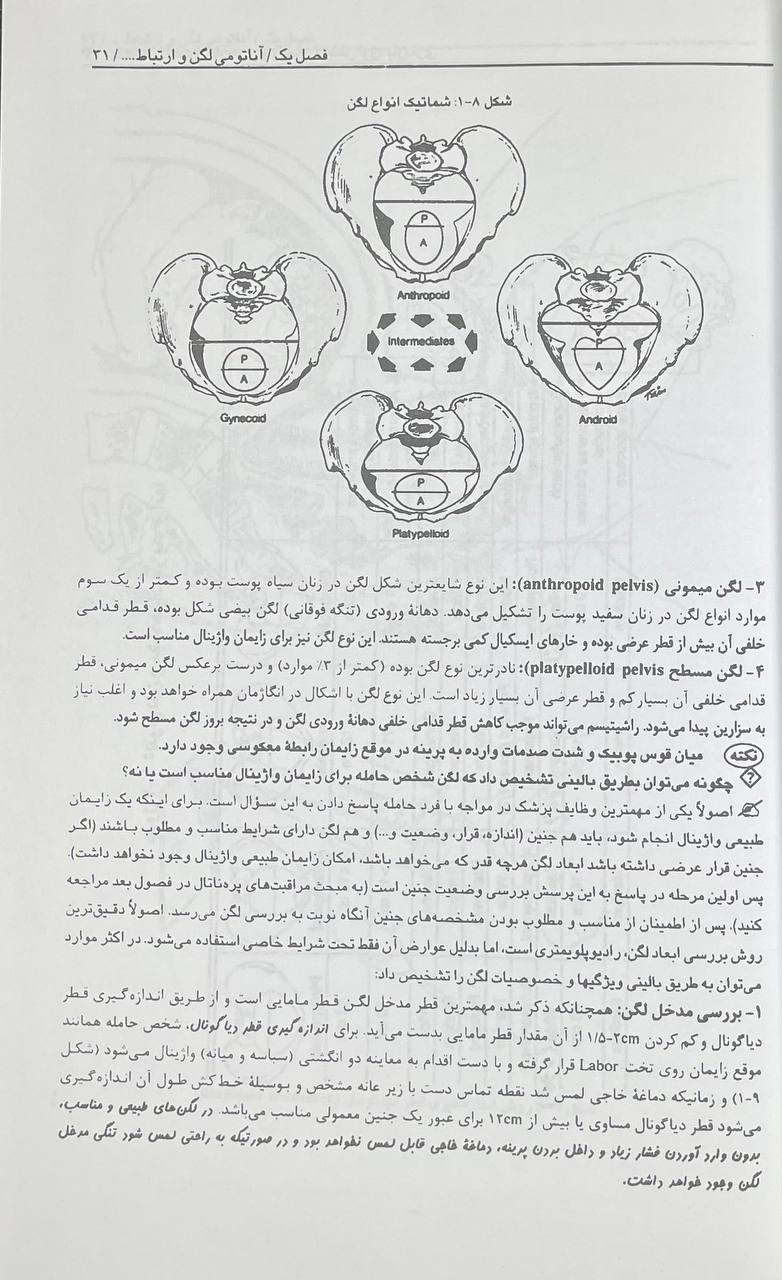 فصل یک / آناتومی لگن و ارتباط.... / ۳۱
شکل ۸-۱: شماتیک انواع لگن
P
A
Anthropoid
P
A
Gynecoid
Intermediates
P
A
Android
P
A
Platypelloid
۳- لگن میمونی (anthropoid pelvis): این نوع شایعترین شکل لگن در زنان سیاه پوست بوده و کمتر از یک سوم
موارد انواع لگن در زنان سفید پوست را تشکیل می‌دهد. دهانهٔ ورودی (تنگه فوقانی) لگن بیضی شکل بوده، قطر قدامی
خلفی آن بیش از قطر عرضی بوده و خارهای ایسکیال کمی برجسته هستند. این نوع لگن نیز برای زایمان واژینال مناسب است.
۴- لگن مسطح (platypelloid pelvis: نادرترین نوع لگن بوده (کمتر از ۳٪ موارد) و درست برعکس لگن میمونی، قطر
قدامی خلفی آن بسیار کم و قطر عرضی آن بسیار زیاد است. این نوع لگن با اشکال در انگاژمان همراه خواهد بود و اغلب نیاز
به سزارین پیدا می‌شود. راشیتیسم می‌تواند موجب کاهش قطر قدامی خلفی دهانهٔ ورودی لگن و در نتیجه بروز لگن مسطح شود.
نکته میان قوس پوبیک و شدت صدمات وارده به پرینه در موقع زایمان رابطهٔ معکوسی وجود دارد.
? چگونه می‌توان بطریق بالینی تشخیص داد که لگن شخص حامله برای زایمان واژینال مناسب است یا نه؟
اصولاً یکی از مهمترین وظایف پزشک در مواجه با فرد حامله پاسخ دادن به این سؤال است. برای اینکه یک زایمان
طبیعی واژینال انجام شود، باید هم جنین (اندازه، قرار، وضعیت و...) و هم لگن دارای شرایط مناسب و مطلوب باشند (اگر
جنین قرار عرضی داشته باشد ابعاد لگن هرچه قدر که می‌خواهد باشد، امکان زایمان طبیعی واژینال وجود نخواهد داشت).
پس اولین مرحله در پاسخ به این پرسش بررسی وضعیت جنین است (به مبحث مراقبت‌های پره‌ناتال در فصول بعد مراجعه
کنید). پس از اطمینان از مناسب و مطلوب بودن مشخصه‌های جنین آنگاه نوبت به بررسی لگن می‌رسد. اصولاً دقیق‌ترین
روش بررسی ابعاد لگن، رادیوپلویمتری است، اما بدلیل عوارض آن فقط تحت شرایط خاصی استفاده می‌شود. در اکثر موارد
می‌توان به طریق بالینی ویژگیها و خصوصیات لگن را تشخیص داد:
۱- بررسی مدخل لگن: همچنانکه ذکر شد، مهمترین قطر مدخل لگن قطر مامایی است و از طریق اندازه‌گیری قطر
دیاگونال و کم کردن ۱/۵-۲cm از آن مقدار قطر مامایی بدست می‌آید. برای اندازه‌گیری قطر دیاگونال، شخص حامله همانند
موقع زایمان روی تخت Labor قرار گرفته و با دست اقدام به معاینه دو انگشتی (سبابه و میانه) واژینال می‌شود (شکل
۹-۱) و زمانیکه دماغهٔ خاجی لمس شد نقطه تماس دست با زیر عانه مشخص و بوسیلهٔ خط‌کش طول آن اندازه‌گیری
می‌شود قطر دیاگونال مساوی یا بیش از ۱۲cm برای عبور یک جنین معمولی مناسب می‌باشد. در لگن‌های طبیعی و مناسب،
بدون وارد آوردن فشار زیاد و داخل بردن پرینه، دماغهٔ خاجی قابل لمس نخواهد بود و در صورتیکه به راحتی لمس شود تنگی مدخل
لگن وجود خواهد داشت.